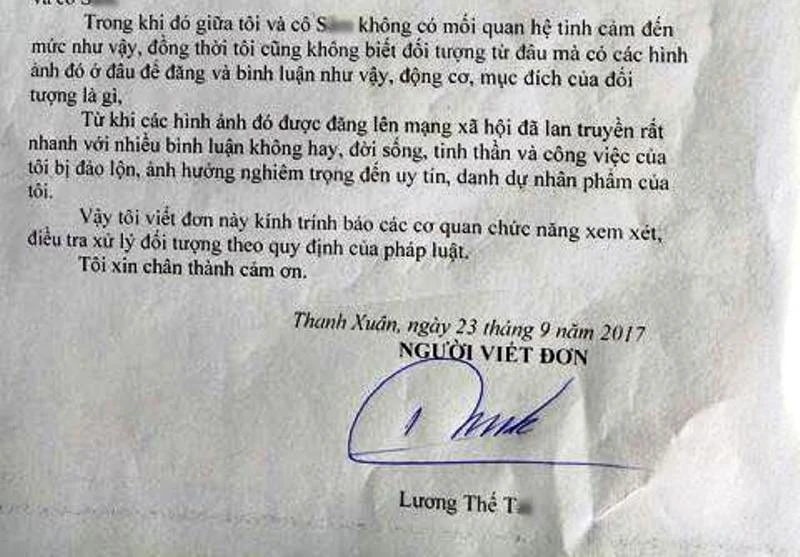 và cô S
Trong khi đó giữa tôi và cô S không có mối quan hệ tình cảm đến
mức như vậy, đồng thời tôi cũng không biết đối tượng từ đâu mà có các hình
ảnh đó ở đâu để đăng và bình luận như vậy, động cơ, mục đích của đối
tượng là gì,
Từ khi các hình ảnh đó được đăng lên mạng xã hội đã lan truyền rất
nhanh với nhiều bình luận không hay, đời sống, tinh thần và công việc của
tôi bị đảo lộn, ảnh hưởng nghiêm trọng đến uy tín, danh dự nhân phẩm của
tôi.
Vậy tôi viết đơn này kính trình báo các cơ quan chức năng xem xét,
điều tra xử lý đối tượng theo quy định của pháp luật.
Tôi xin chân thành cảm ơn.
Thanh Xuân, ngày 23 tháng 9 năm 2017
NGƯỜI VIẾT ĐƠN
Lương Thế T